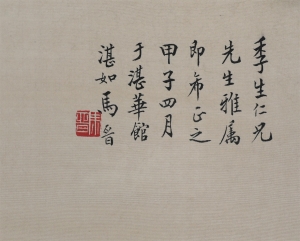 季生仁兄
先生雅属
即希正之
甲子四月
于湛華館
湛如馬晉